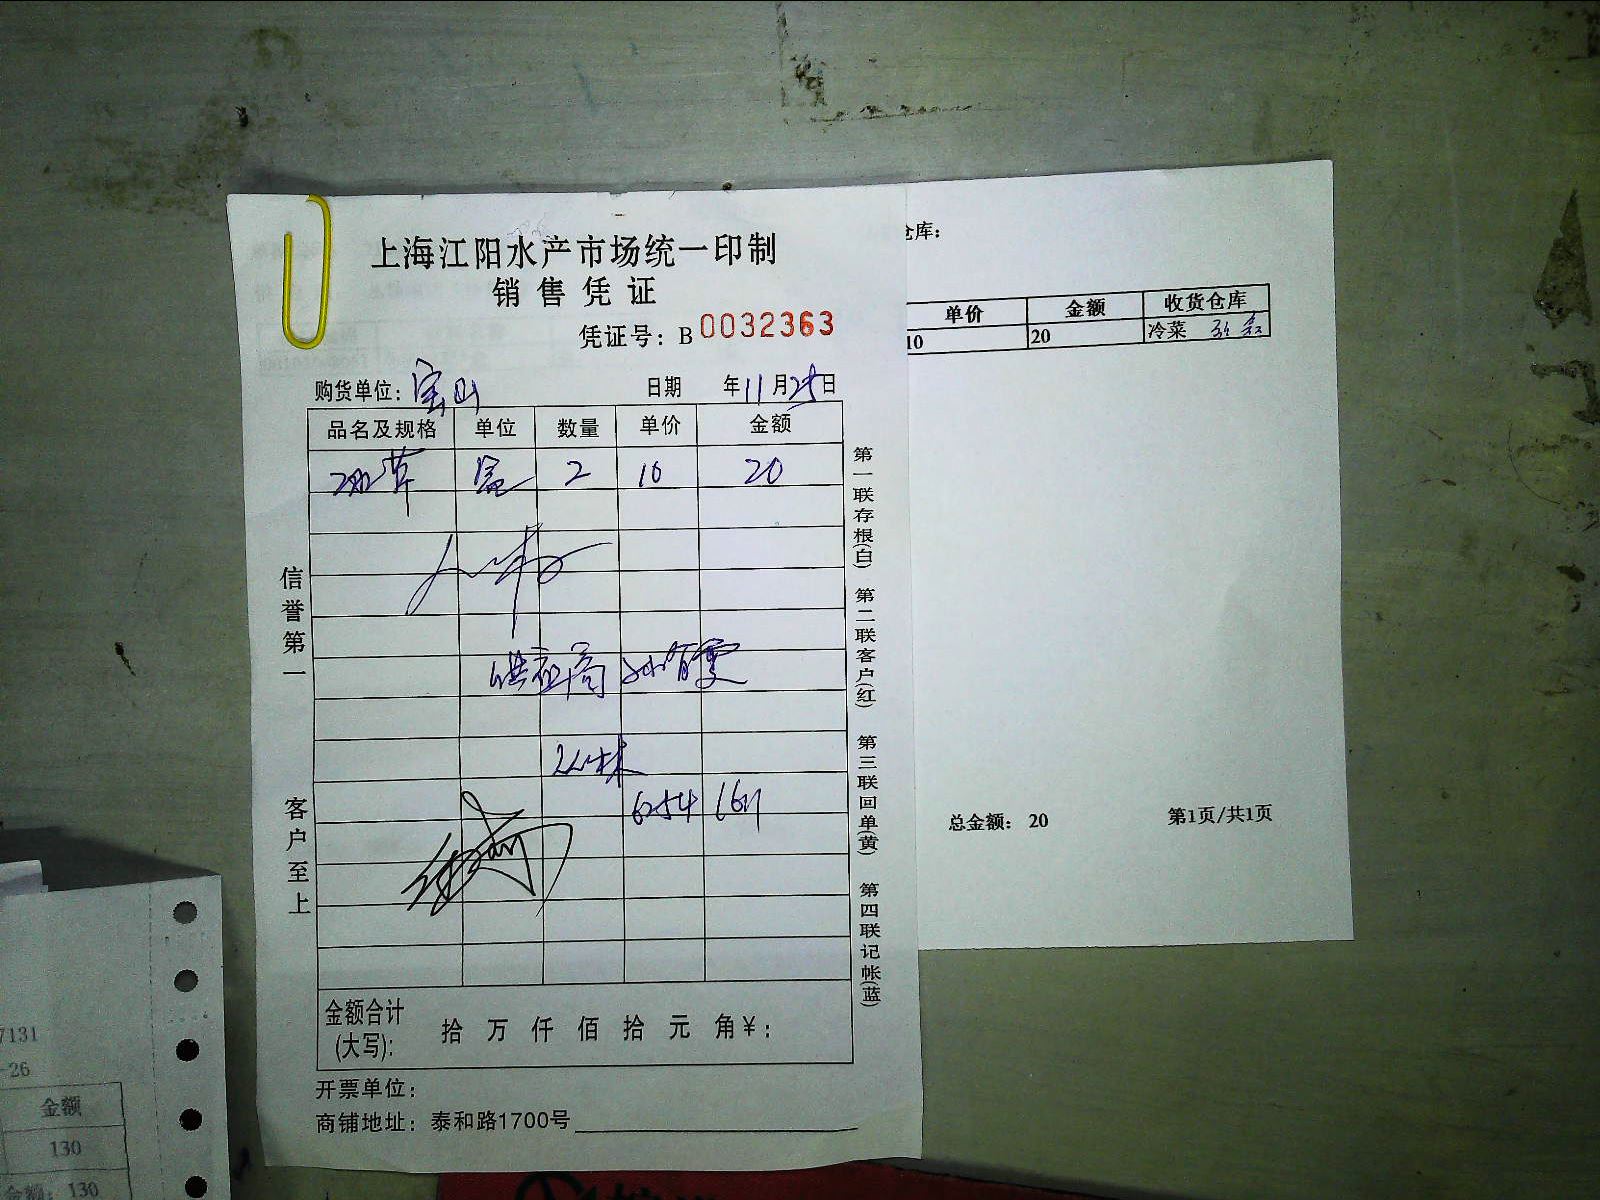 上海江阳水产市场统一印制
销售凭证
凭证号：B 0032363
购货单位：宝山 日期 年11月25日
品名及规格 单位 数量 单价 金额
盒 2 10 20
供应商
6254
金额合计(大写)： 拾 万 仟 佰 拾 元 角 ¥：
开票单位：
商铺地址：泰和路1700号
信誉第一
客户至上
第一联存根(白)
第二联客户(红)
第三联回单(黄)
第四联记帐(蓝)
仓库：
单价 金额 收货仓库
10 20 冷菜
总金额： 20 第1页/共1页
7131
-26
金额
130
金额： 130